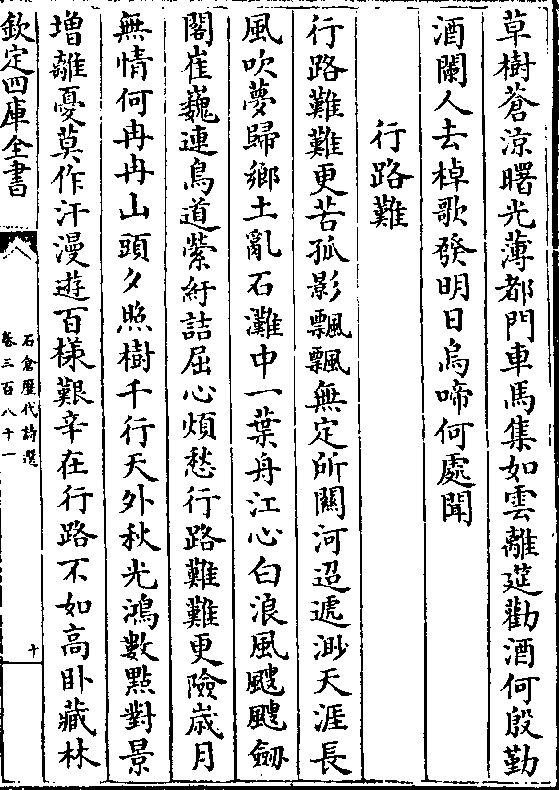 草樹蒼涼曙光薄都門車馬集如雲離筵勸酒何殷勤
酒闌人去棹歌發明日烏啼何處聞
行路難
行路難難更苦孤影飄飄無定所關河迢遞渺天涯長
風吹夢歸鄉土亂石灘中一葉舟江心白浪風颼颼劒
閣崔巍連鳥道縈紆詰屈心煩愁行路難難更險歲月
無情何冉冉山頭夕照樹千行天外秋光鴻數點對景
增離憂莫作汗漫遊百樣艱辛在行路不如高卧藏林
欽定四庫全書
石倉歷代詩選
卷三百八十一
十